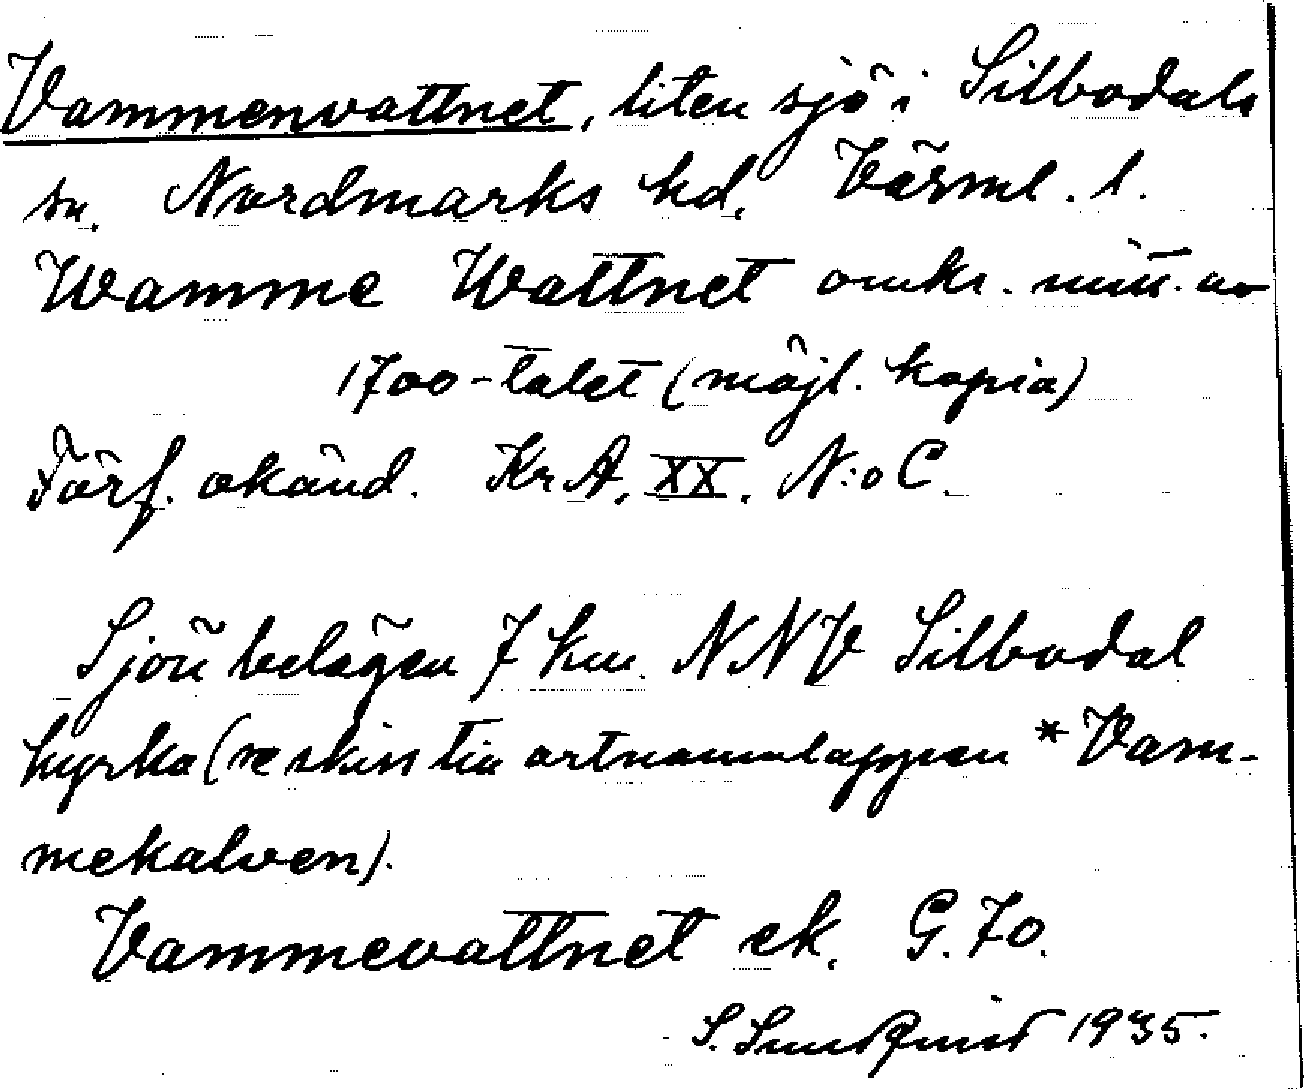 Vammenvattnet, liten sjö i Silbodals
sn. Nordmarks hd, Värml. l.
Wamme Wattnet omkr. mitt. av
1700-talet (möjl. kopia)
Förf. okänd. KrA, XX. N:o C.
Sjön belägen 7 km. NNV Silbodal
kyrka (se skiss till ortnamnslappen *Vam-
mekalven).
Vammevattnet ek. G. 70.
S. Sundqvist 1935.